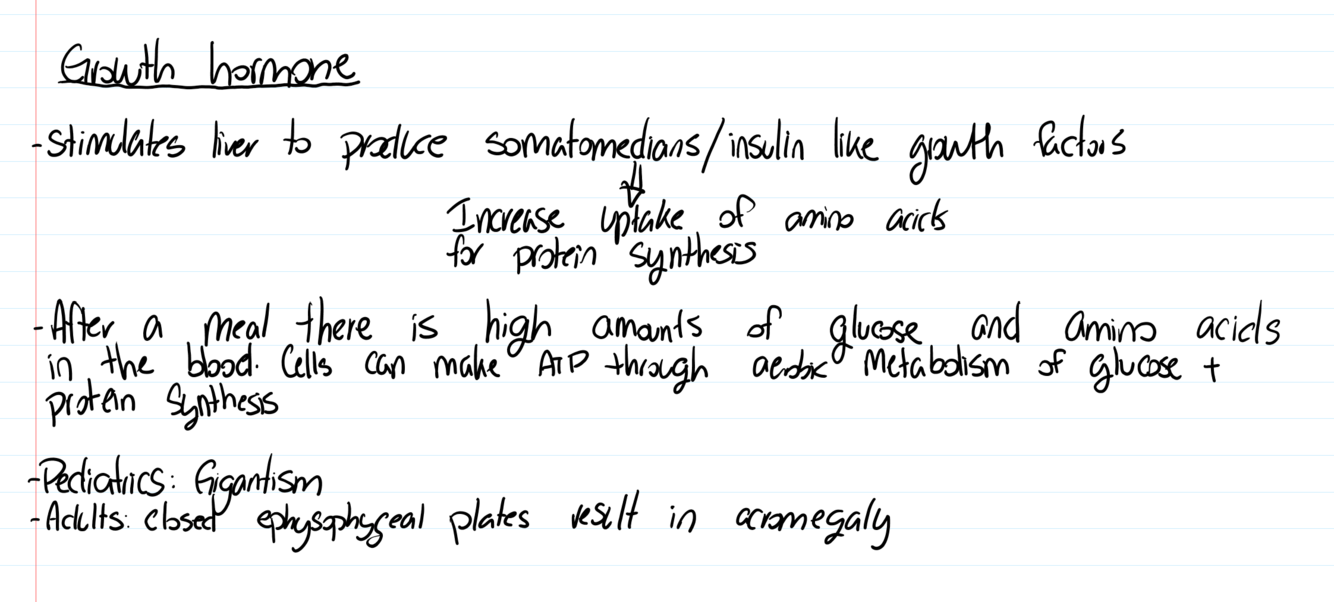 Growth hormone
-stimulates liver to produce somatomedians/insulin like growth factors
Increase uptake of amino acids
for protein synthesis
-After a meal there is high amounts of glucose and amino acids
in the blood. Cells can make ATP through aerobic metabolism of glucose +
protein synthesis
-Pediatrics: Gigantism
-Adults: closed ephysophyseal plates result in acromegaly